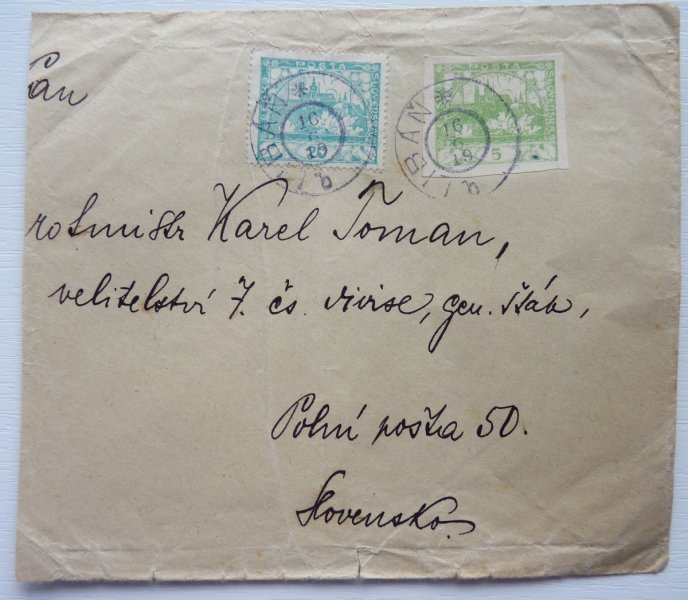 POSTA
POSTA
SLOVENSKÁ
5
LIBÁŇ *
16
19
LIBÁŇ *
16
6
19
Pan
rotmistr Karel Toman,
velitelství 7. čs. divise, gen. štáb,
Polní pošta 50.
Slovensko.